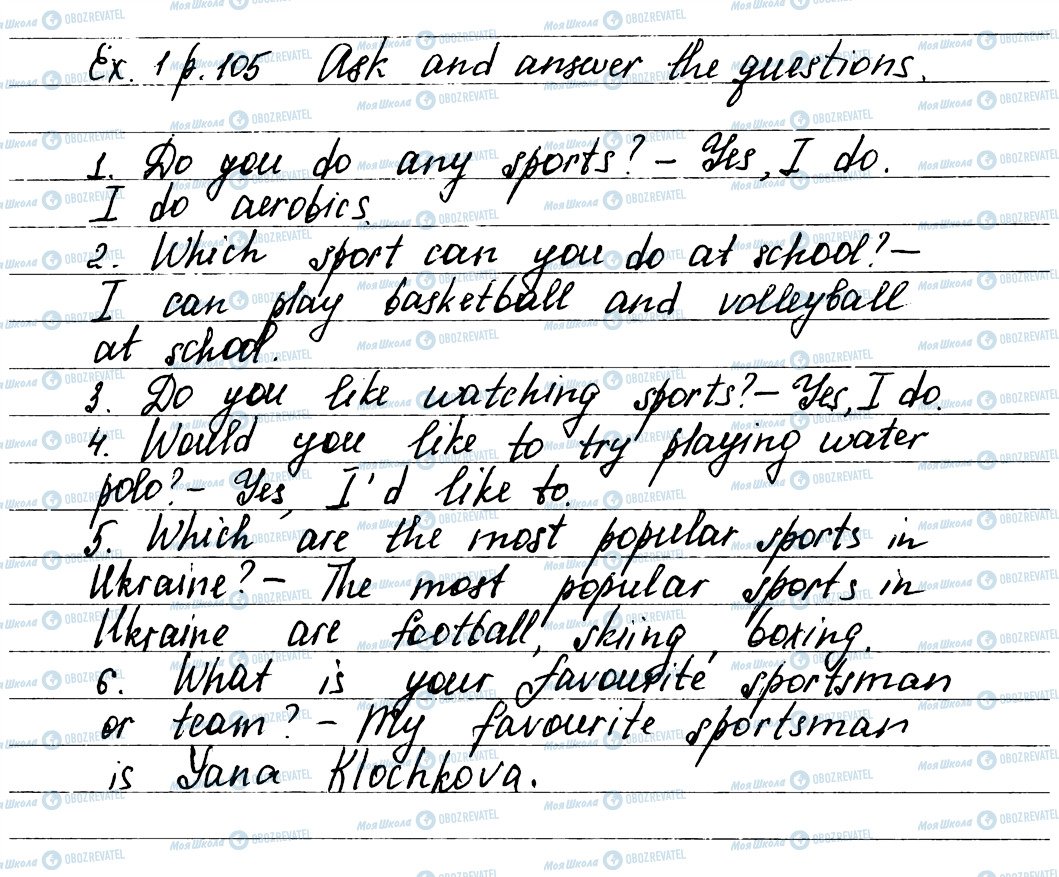 Ex. 1 p. 105 Ask and answer the questions.
1. Do you do any sports? – Yes, I do.
I do aerobics.
2. Which sport can you do at school? –
I can play basketball and volleyball
at school.
3. Do you like watching sports? – Yes, I do.
4. Would you like to try playing water
polo? – Yes, I'd like to.
5. Which are the most popular sports in
Ukraine? – The most popular sports in
Ukraine are football, skiing, boxing.
6. What is your favourite sportsman
or team? – My favourite sportsman
is Yana Klochkova.
МояШкола OBOZREVATEL